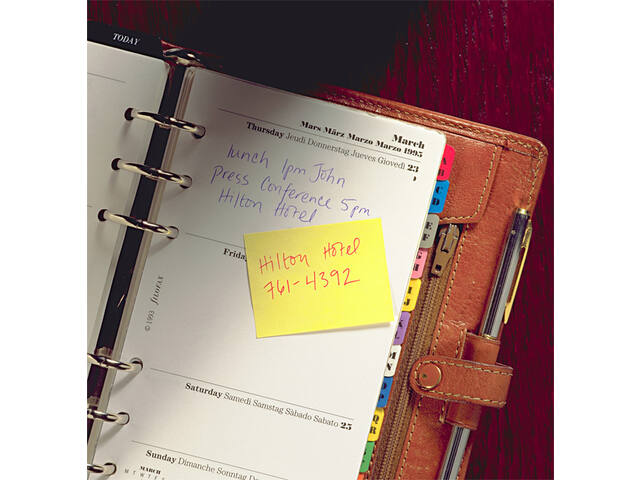 TODAY
March
Mars März Marzo Marzo 1995
Thursday Jeudi Donnerstag Jueves Giovedì 23
lunch 1pm John
press Conference 5pm
Hilton Hotel
Frid
Hilton Hotel
761-4392
© 1993 filofax
Saturday Samedi Samstag Sàbado Sabato 25
Sunday Dimanche Sonntag Do
MARCH
M T W T F
A
B
C
D
E
F
G
H
I
J
K
L
M
N
O
P
Q
R